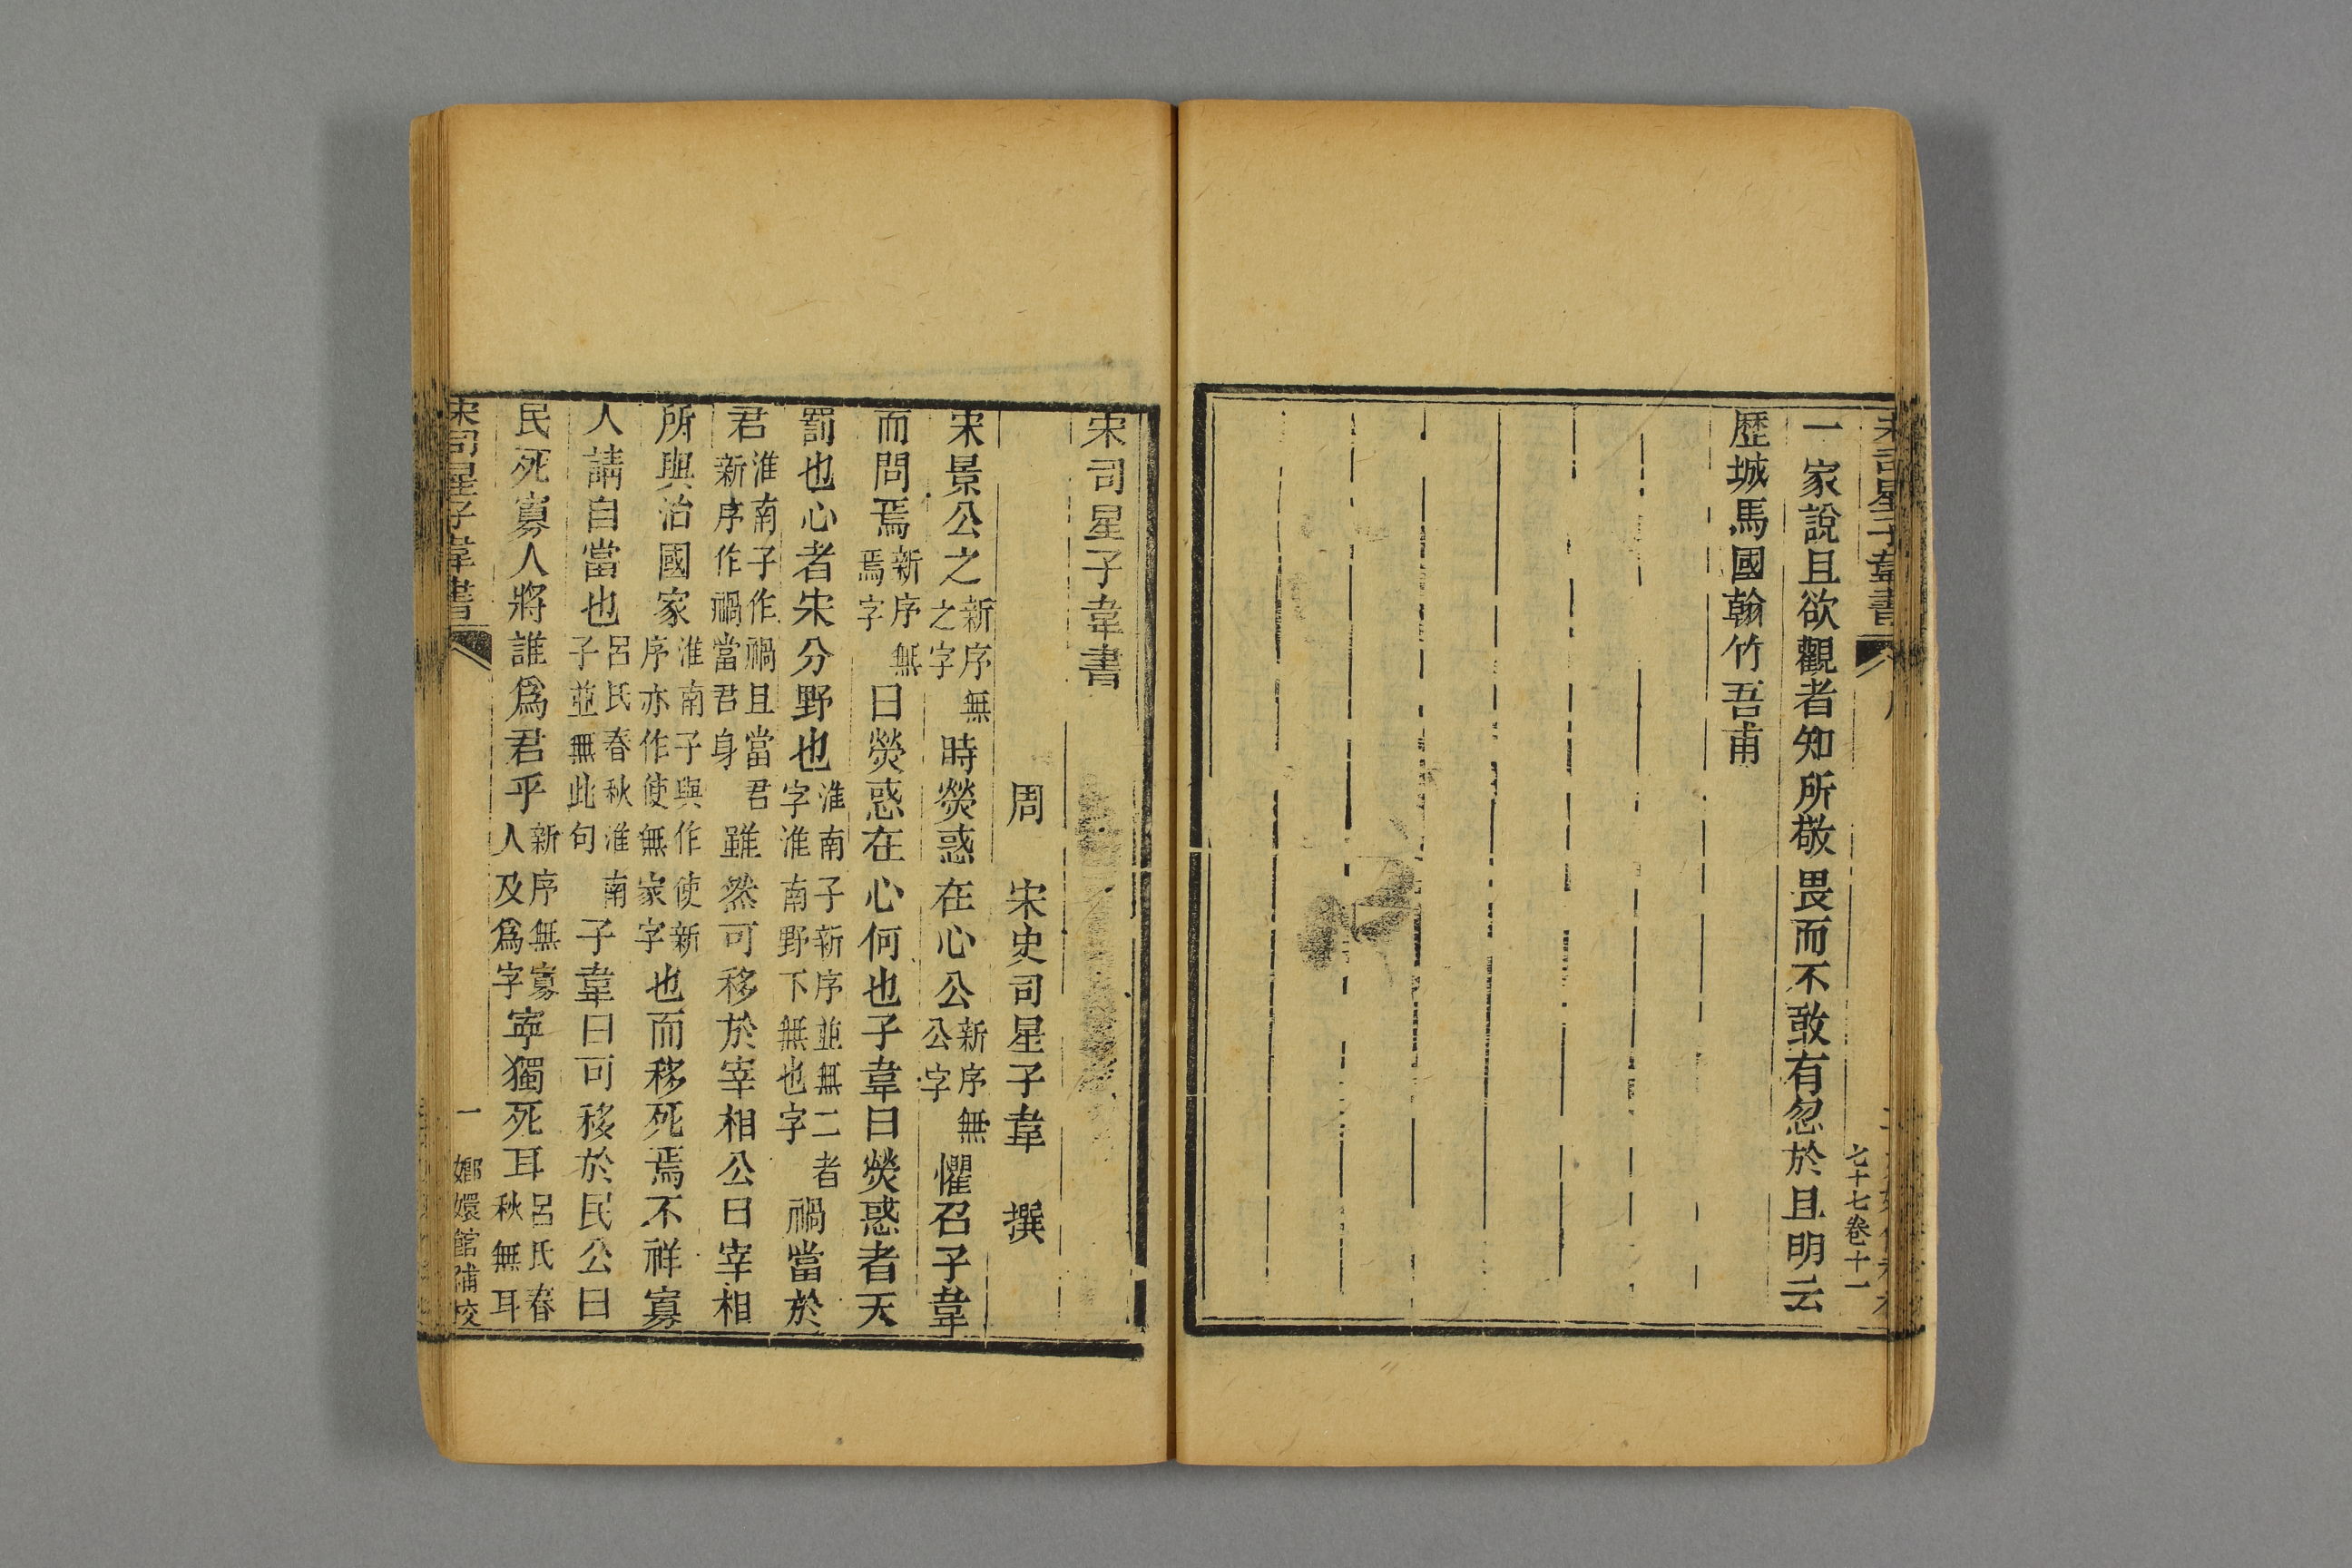 宋司星子韋書
七十七卷十一
一家說且欲觀者知所敬畏而不敢有忽於且明云
歷城馬國翰竹吾甫
宋司星子韋書
周 宋史司星子韋 撰
宋景公之新序無之字時熒惑在心公新序無公字懼召子韋
而問焉新序無焉字曰熒惑在心何也子韋曰熒惑者天
罰也心者宋分野也淮南子新序並無二者字淮南野下無也字禍當於
君淮南子作禍且當君新序作禍當君身雖然可移於宰相公曰宰相
所與治國家淮南子與作使新序亦作使無家字也而移死焉不祥寡
人請自當也呂氏春秋淮南子並無此句子韋曰可移於民公曰
民死寡人將誰爲君乎新序無寡人及爲字寧獨死耳呂氏春秋無耳
宋司星子韋書 一 嫏嬛館補校